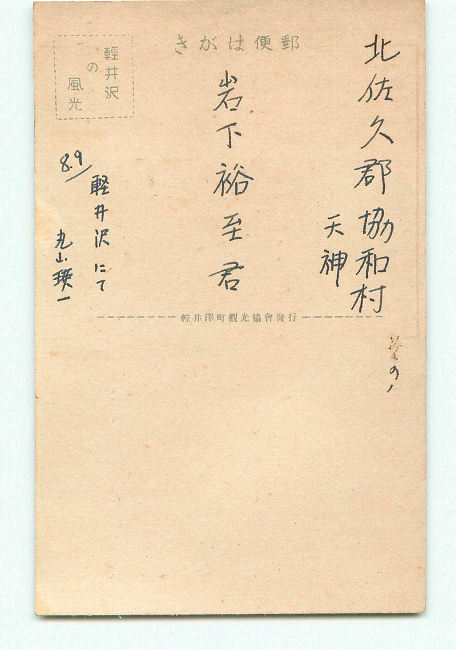 郵便はがき
輕井沢
の
風光
北佐久郡協和村
天神
岩下裕至君
8.9
軽井沢にて
丸山瑛一
輕井澤町觀光協會發行
その